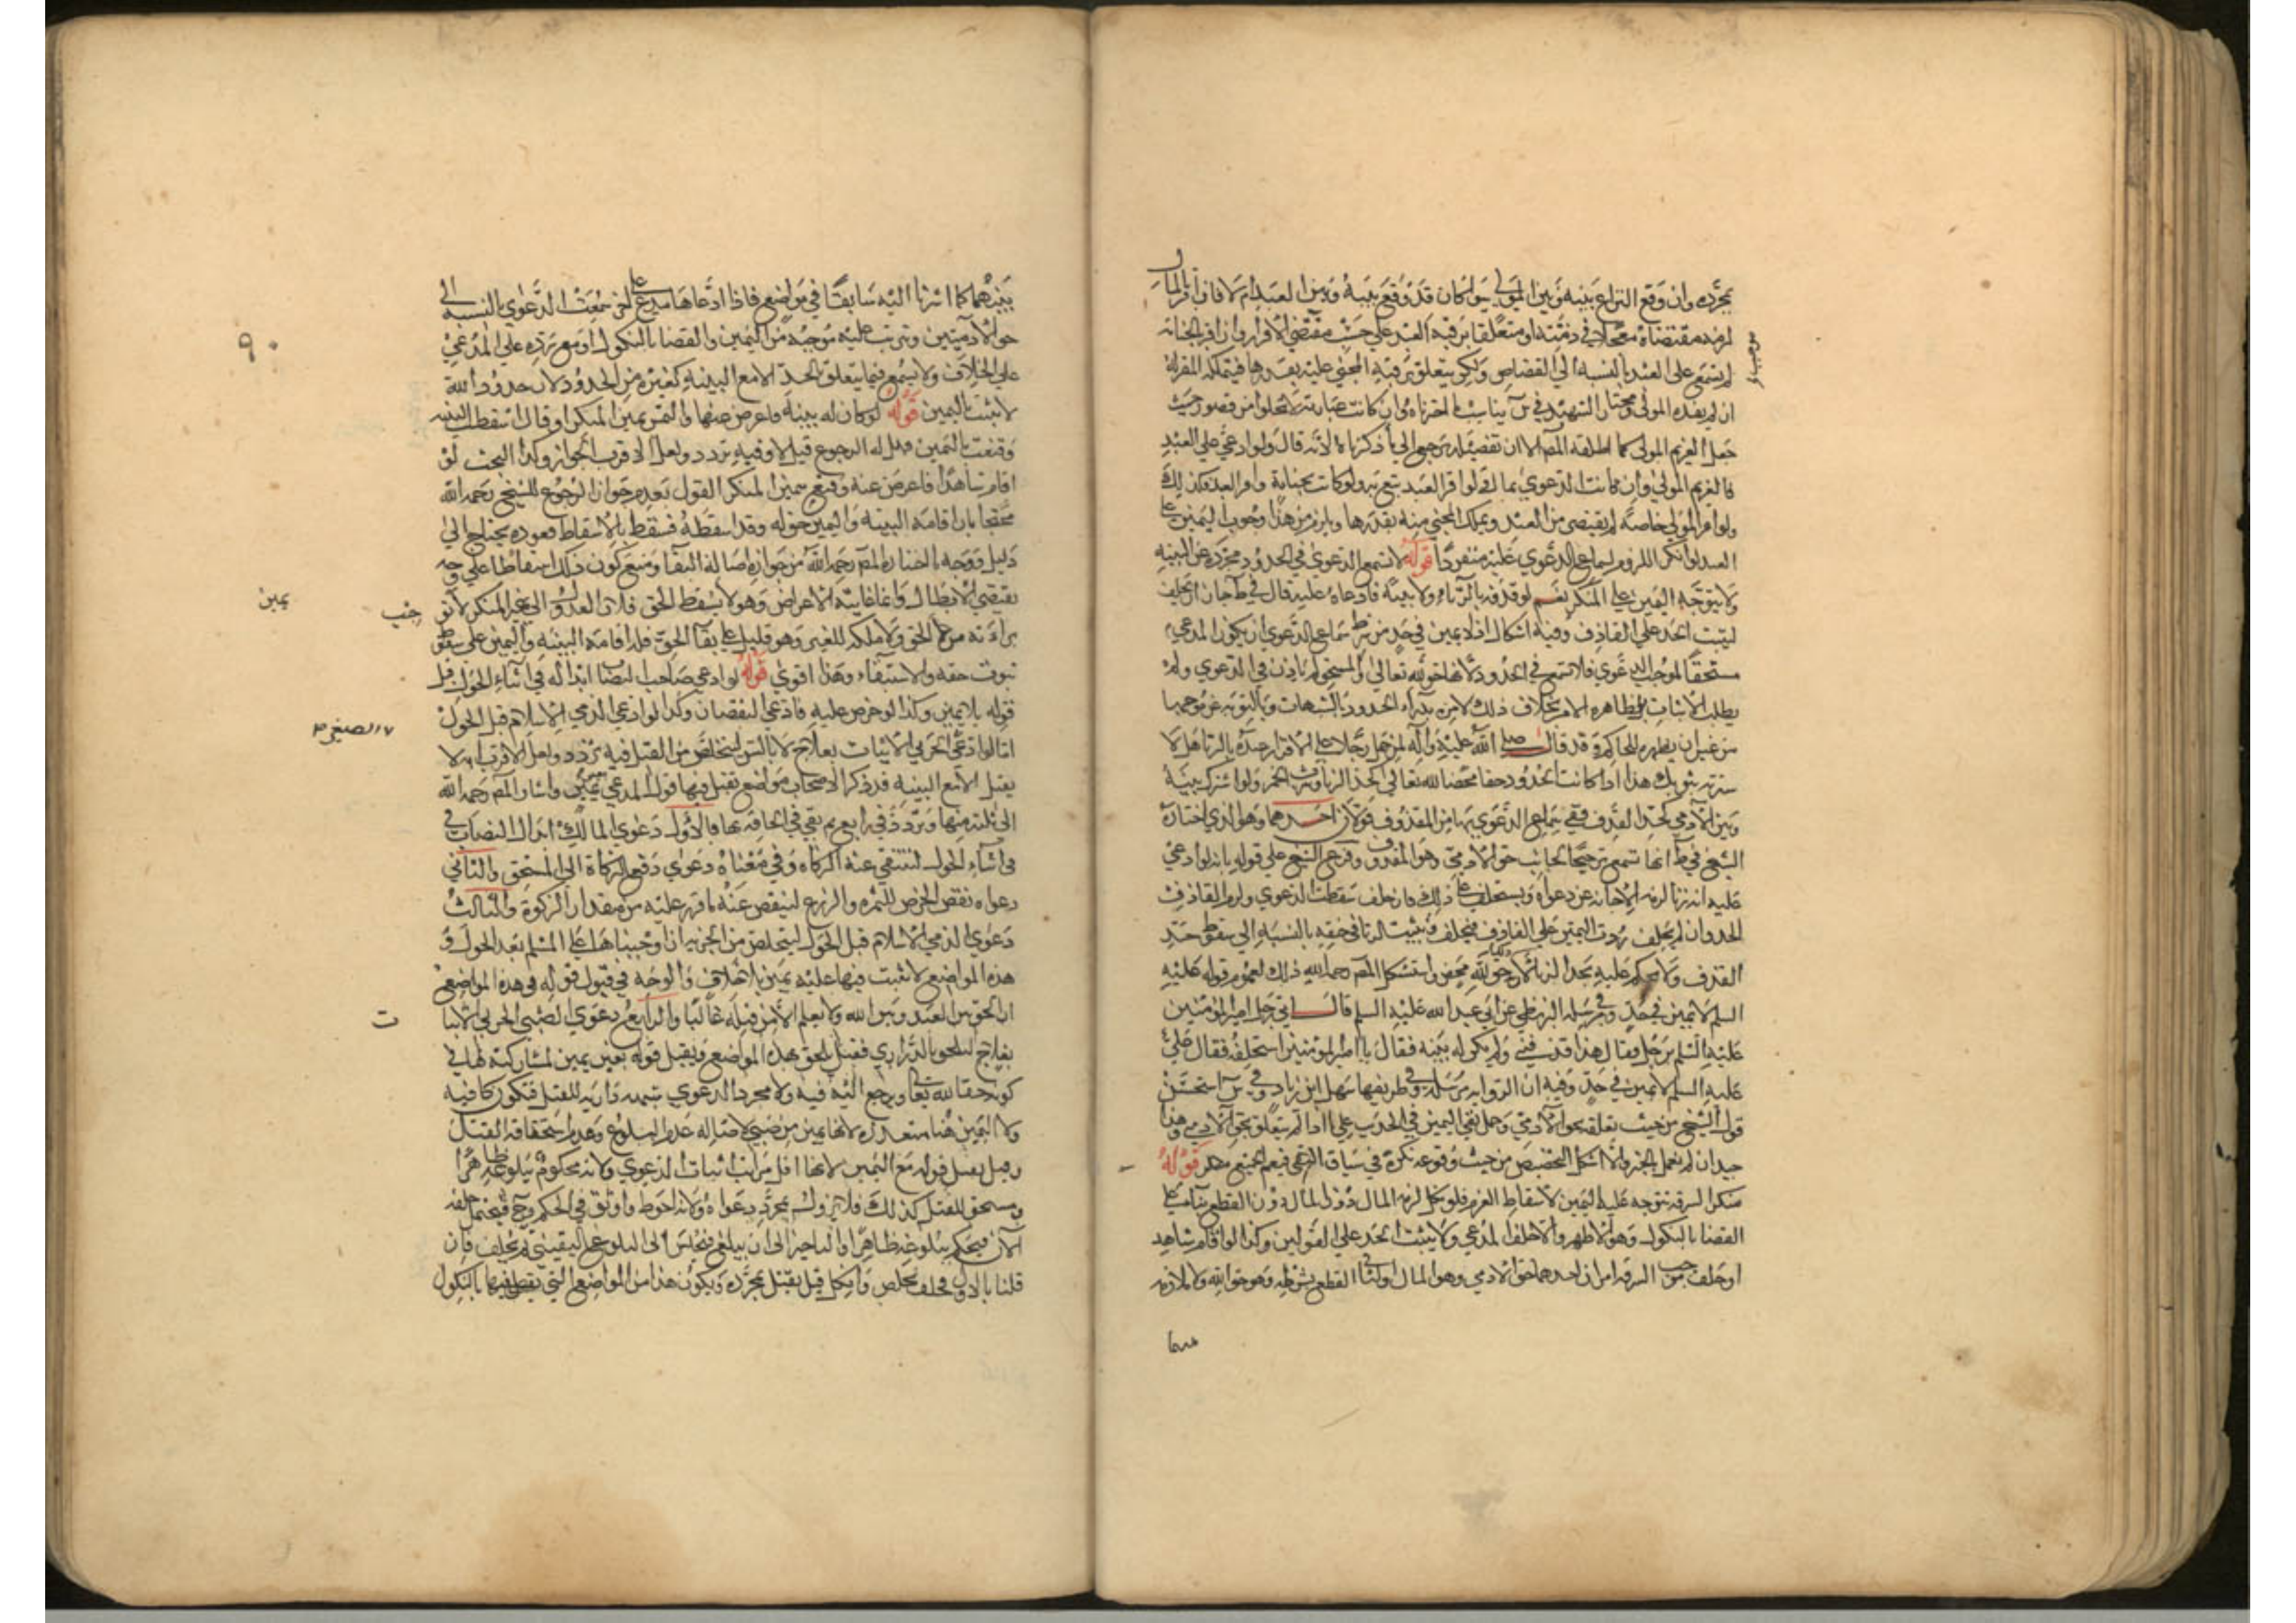 بمجرده وان وقع النزاع بينه وبين المولى سواء كان قد وقع بينه وبين العبد ام لا فان اقر بالمال
لزمه مقتضاه معجلا في ذمته او متعلقا برقبة العبد على حسب مقتضى الاقرار وان اقر بالجناية
لم يسمع على العبد بالنسبة الى القصاص ولكن يتعلق برقبة المجني عليه بقدرها فيتملكه المقر له
ان لم يفده المولى ومختار الشهيد في س يناسب ما اخترناه وان كانت عبارته لا تخلوا من قصور حيث
جعل الغريم المولى كما اطلقه المصر الا ان تفصيله يرجع الى ما ذكرناه لانه قال ولو ادعى على العبد
فالغريم المولى وان كانت الدعوى بمال فلو اقر العبد تبع به ولو كانت بجناية واقر العبد فكذلك
ولو اقر المولى خاصة لم يقتص من العبد ويملك المجني منه بقدرها ويلزم من هذا وجوب اليمين على
العبد لو انكر اللزوم لسماع الدعوى عليه منفردا قوله لا تسمع الدعوى في الحدود مجردة عن البينة
ولا يتوجه اليمين على المنكر نعم لو قذفه بالزناء ولا بينة فادعاه عليه قال في ط جاز ان يحلف
ليثبت الحد على القاذف وفيه اشكال اذ لا يمين في حد من شرط سماع الدعوى ان يكون المدعي
مستحقا لموجب الدعوى فلا تسمع في الحدود لانها حق لله تعالى والمستحق لم ياذن في الدعوى ولم
يطلب الاثبات بل ظاهره الامر بخلاف ذلك لامره بدرء الحدود بالشبهات وبالتوبة عن موجبها
من غير ان يظهره للحاكم وقد قال صلى الله عليه وآله لمن حمل رجلا على الاقرار عنده بالزنا هلا
سترته بثوبك هذا اذا كانت الحدود حقا محضا لله تعالى كحد الزنا وشرب الخمر ولو اشترك بينه
وبين الآدمي كحد القذف ففي سماع الدعوى بها من المقذوف قولان احدهما وهو الذي اختاره
الشيخ في ط انها تسمع ترجيحا لجانب حق الادمي وهو المقذوف وفرع الشيخ على قوله بانه لو ادعى
عليه انه زنا لزمه الاجابة عن دعواه ويستحلف على ذلك فان حلف سقطت الدعوى ولزم القاذف
الحد وان لم يحلف ردت اليمين على القاذف فيحلف ويثبت الزنا في حقه بالنسبة الى سقوط حد
القذف ولا يحكم عليه بحد الزنا لان ذلك حق لله محض واستشكل المصر رحمه الله ذلك لعموم قوله عليه
السلم لا يمين في حد وفي مرسلة البزنطي عن ابي عبد الله عليه السلم قال اتى رجل امير المؤمنين
عليه السلم برجل فقال هذا قذفني ولم يكن له بينة فقال يا امير المؤمنين استحلفه فقال علي
عليه السلم لا يمين في حد وفيه ان الرواية مرسلة وفي طريقها سهل ابن زياد وفي س استحسن
قول الشيخ من حيث تعلقه بحق الآدمي وحمل نفي اليمين في الحد على ما اذا لم يتعلق بحق الآدمي وهذا
جيد ان لم نعمل بالخبر والا اشكل التخصيص من حيث وقوعه نكرة في سياق النفي فيعم الجميع قوله
منكر السرقة تتوجه عليه اليمين لاسقاط الغرم فلو نكل لزمه المال دون القطع بناء على
القضا بالنكول وهو الاظهر والا حلف المدعي ولا يثبت الحد على القولين وكذا لو اقام شاهدا
او حلف موجب السرقة امران احدهما حق الادمي وهو المال والثاني القطع بشرطه وهو حق الله ولا ملازمة
بينهما
٩٠
بينهما كما اشرنا اليه سابقا في مواضع فاذا ادعاها مدع على اخر سمعت الدعوى بالنسبة الى
حق الآدميين وترتب عليه موجبه من اليمين والقضا بالنكول او مع رده على المدعي
على الخلاف ولا يسمع فيما يتعلق بالحد الا مع البينة كغيره من الحدود لان حدود الله
لا تثبت باليمين قوله لو كان له بينة فاعرض عنها والتمس يمين المنكر او قال اسقطت البينة
وقنعت باليمين فهل له الرجوع قيل لا وفيه تردد ولعل الاقرب الجواز وكذا البحث لو
اقام شاهدا فاعرض عنه وقنع بيمين المنكر القول بعدم جواز الرجوع للشيخ رحمه الله
محتجا بان اقامة البينة واليمين حق له وقد اسقطه فسقط بالاسقاط فعوده يحتاج الى
دليل ووجه ما اختاره المصر رحمه الله من جوازه اصالة البقآ ومنع كون ذلك اسقاطا على وجه
يقتضي الابطال وانما غايته الاعراض وهو لا يسقط الحق فلان العدول الى يمين المنكر لا توجب
براءته من الحق ولا ملكه للغير وهو دليل على بقآ الحق فله اقامة البينة واليمين على
ثبوت حقه والاستيفاء وهذا اقوى قوله لو ادعى صاحب النصاب ابداله في اثناء الحول قبل
قوله بلا يمين وكذا لو خرص عليه فادعى النقصان وكذا لو ادعى الذمي الاسلام قبل الحول
اما لو ادعى الحربي الانبات بعلاج لا بالسن ليتخلص من القتل فيه تردد ولعل الاقرب انه لا
يقبل الا مع البينة قد ذكر الاصحاب مواضع تقبل فيها قول المدعي بغير يمين واشار المصر رحمه الله
الى ثلثة منها وتردد في رابع ثم بقي في الحاقه بها فالاول دعوى المالك ابدال النصاب في
في اثناء الحول لتنتفي عنه الزكاه وفي معناه دعوى دفع الزكاة الى المستحق والثاني
دعواه نقص الخرص للثمرة والزرع لينقص عنه ما قرر عليه من مقدار الزكوة والثالث
دعوى الذمي الاسلام قبل الحول ليتخلص من الجزية ان اوجبناها على المسلم بعد الحول و
هذه المواضع لا تثبت فيها عليه يمين بلا خلاف والوجه في قبول قوله في هذه المواضع
ان الحق بين العبد وبين الله ولا يعلم الا من قبله غالبا والرابع دعوى الصبي الحربي الانبات
بعلاج ليلحق بالذراري فقيل يلحق بهذه المواضع ويقبل قوله بغير يمين لمشاركته لها في
كونه حقا لله تعالى ويرجع اليه فيه ولا مجرد الدعوى شبهة دارئة للقتل فتكون كافية
ولان اليمين هنا متعذرة لانها يمين من صبي لاصالة عدم البلوغ وعدم استحقاقه القتل
وقيل يقبل قوله مع اليمين لانها اقل مراتب اثبات الدعوى ولانه محكوم ببلوغه ظاهرا
ومستحق للقتل كذلك فلا يزول بمجرد دعواه ولانه احوط واوثق في الحكم وح فيحتمل حلفه
الآن فيحكم ببلوغه ظاهرا والتاخير الى ان يبلغ فيحبس الى البلوغ اليقيني ثم يحلف فان
قلنا بالاول فحلف تخلص وان نكل قيل يقتل بمجرده ويكون هذا من المواضع التي يقضى فيها بالنكول
يمين